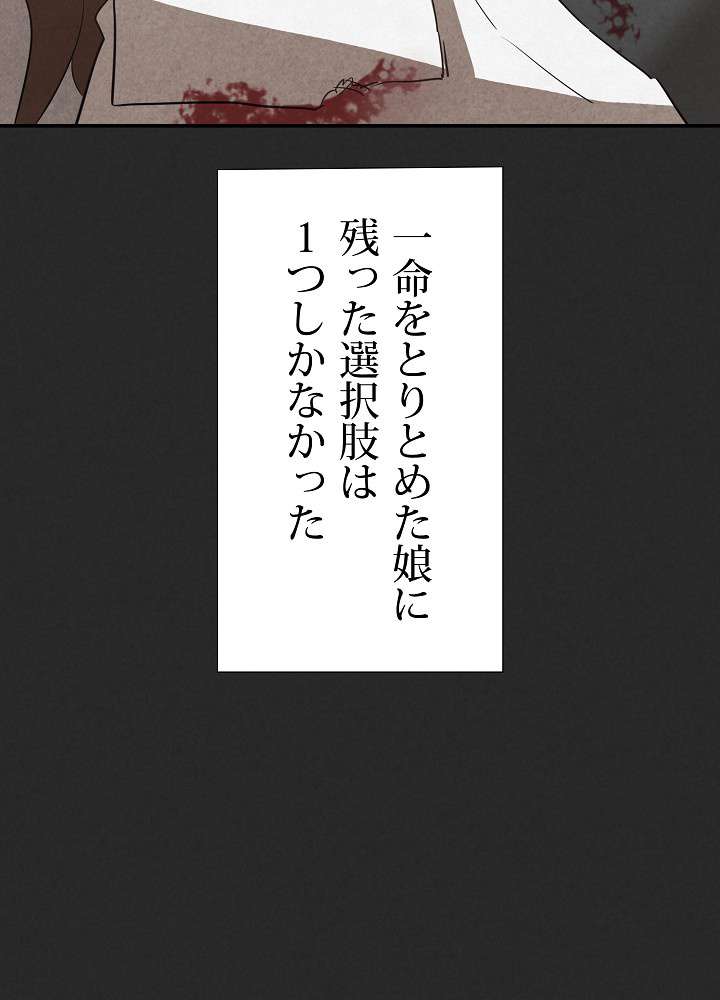 一命をとりとめた娘に
残った選択肢は
1つしかなかった